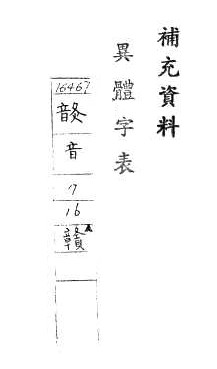 補充資料
異體字表
16467
音
7
16
贛